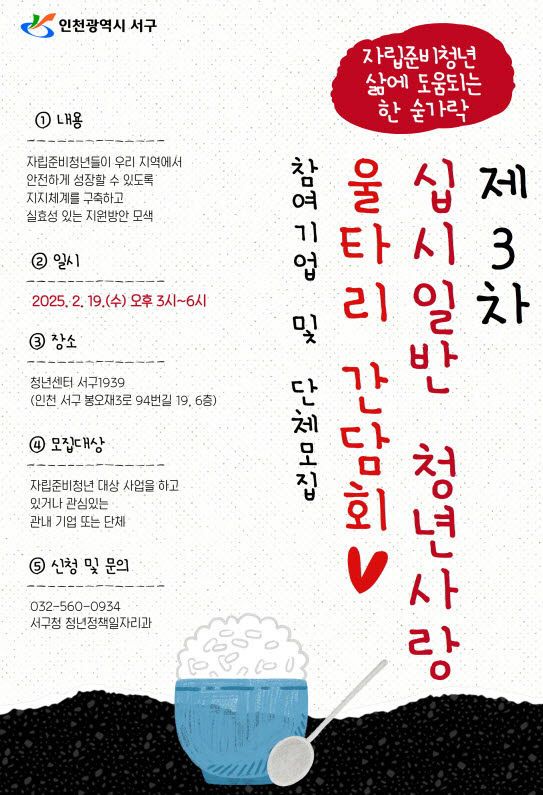 인천광역시 서구
자립준비청년
삶에 도움되는
한 숟가락
제3차
십시일반 청년사랑
울타리 간담회
참여기업 및 단체모집
① 내용
자립준비청년들이 우리 지역에서
안전하게 성장할 수 있도록
지지체계를 구축하고
실효성 있는 지원방안 모색
② 일시
2025. 2. 19.(수) 오후 3시~6시
③ 장소
청년센터 서구1939
(인천 서구 봉오재3로 94번길 19, 6층)
④ 모집대상
자립준비청년 대상 사업을 하고
있거나 관심있는
관내 기업 또는 단체
⑤ 신청 및 문의
032-560-0934
서구청 청년정책일자리과